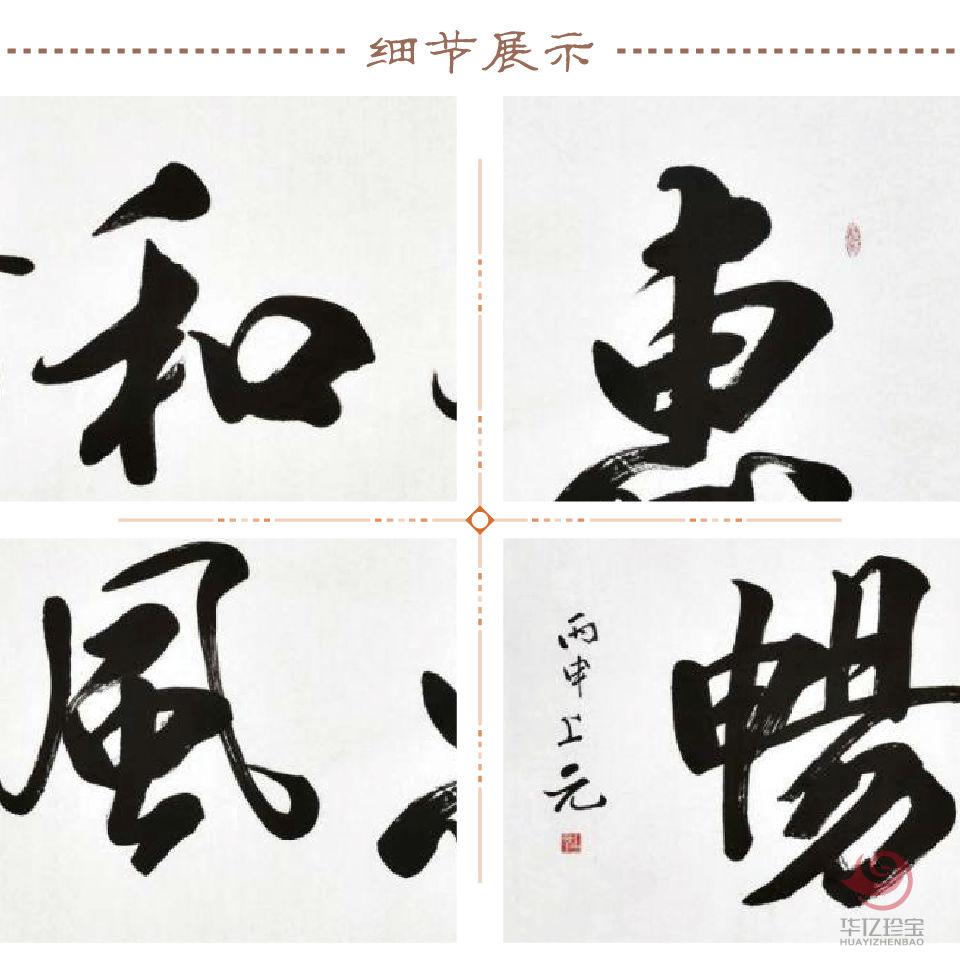 细节展示
和
惠
風
暢
丙申上元
华亿珍宝
HUAYIZHENBAO